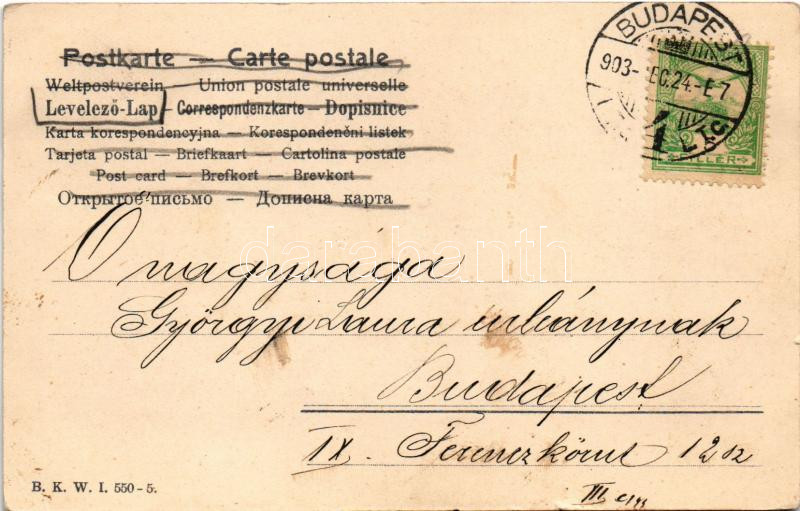 Postkarte — Carte postale
Weltpostverein — Union postale universelle
Levelező-Lap — Correspondenzkarte — Dopisnice
Karta korespondencyjna — Korespondenční listek
Tarjeta postal — Briefkaart — Cartolina postale
Post card — Brefkort — Brevkort
Открытое письмо — Дописна карта
BUDAPEST
903
24
E 7
darabanth
Ő nagysága
Györgyi Laura urhánynak
Budapest
IX. Ferenczkörut 12 sz
III
B. K. W. I. 550-5.